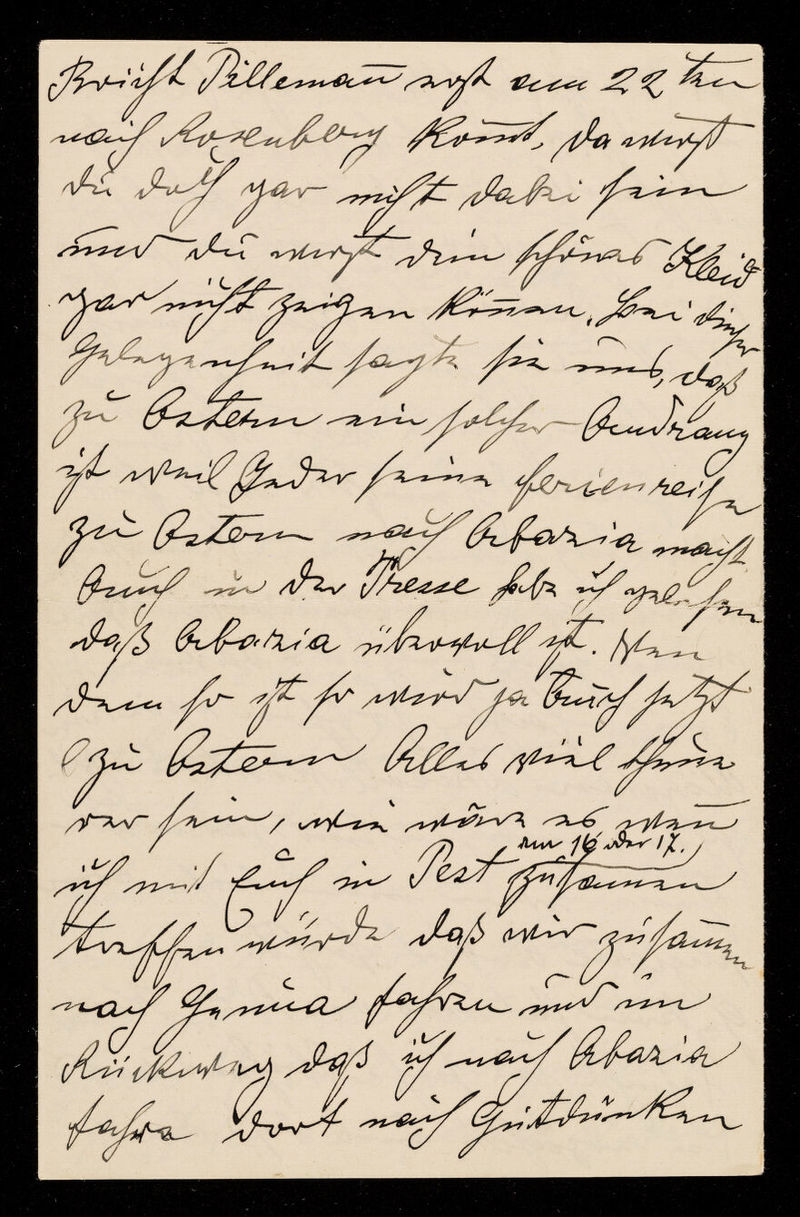 Bricht Pillemañ erst am 22ten
nach Rosenberg kom̅t, da wirst
du doch gar nicht dabei sein
und du wirst dein schönes Kleid
gar nicht zeigen kön̅en. Bei dieser
Gelegenheit sagte sie uns, daß
zu Ostern ein solcher Andrang
ist weil Jeder seine Ferienreise
zu Ostern nach Abazia macht
Auch in der Presse habe ich gelesen
daß Abazia übervoll ist. Wen
dem so ist so wird ja Auch jetzt
zu Ostern Alles viel theue
rer sein, wie wäre es wen̅
am 16 oder 17.
ich mit Euch in Pest zusamen
treffen würde daß wir zusam̅en
nach Genua fahren und im
Rückweg daß ich nach Abazia
fahre dort nach Gutdünken